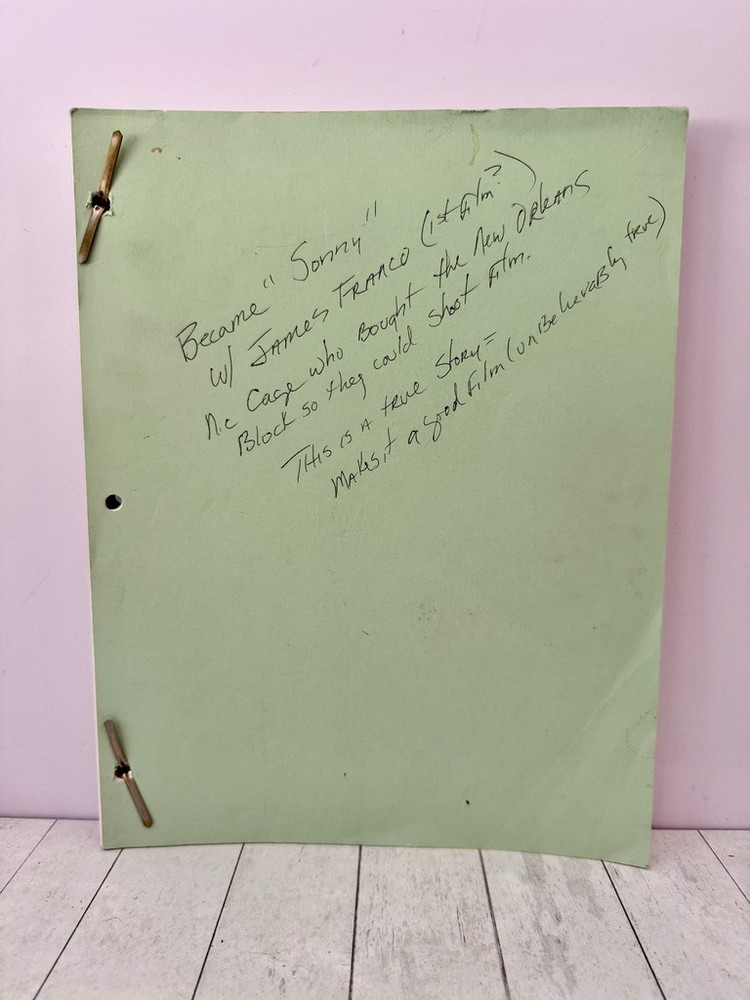 Became "Sonny"
w/ James Franco (1st film?)
Nic Cage who bought the New Orleans
Block so they could shoot film.
This is a true story =
makes it a good film (unbelievably true)